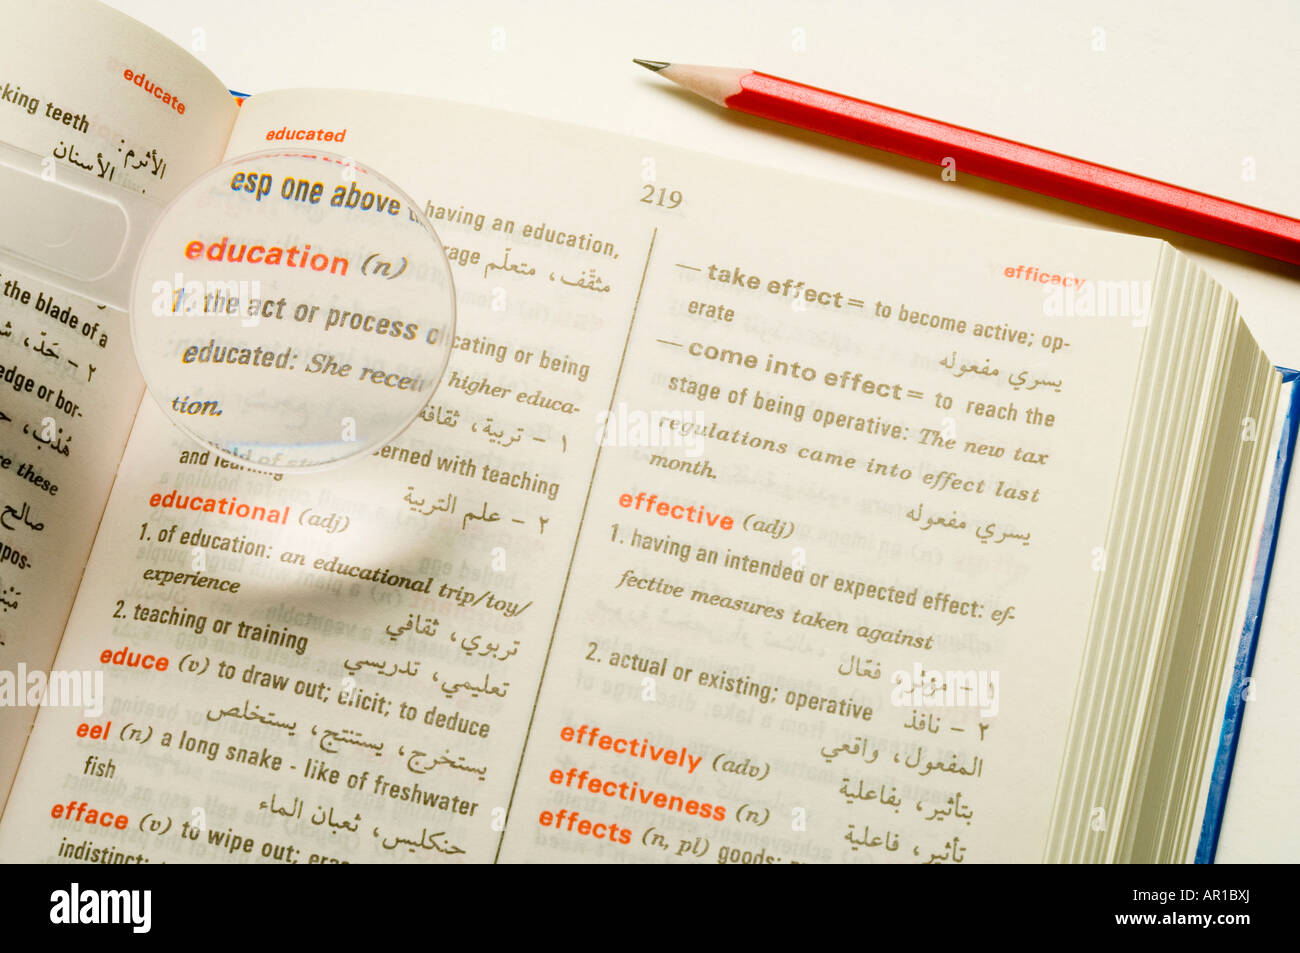 educate
king teeth
الأثرم:
الأسنان
the blade of a
٢ - حَدّ،
edge or bor-
هُدْب،
these
صالح
educated
219
efficacy
esp one above
having an education,
مثقّف، متعلّم
education (n)
1. the act or process
cating or being
educated: She recei
higher educa-
tion.
١ - تربية، ثقافة
cerned with teaching
and learning
٢ - علم التربية
educational (adj)
1. of education: an educational trip/toy/
experience
تربوي، ثقافي
2. teaching or training
تعليمي، تدريسي
educe (v) to draw out; elicit; to deduce
يستخرج، يستنتج، يستخلص
eel (n) a long snake - like of freshwater
fish
حنكليس، ثعبان الماء
efface (v) to wipe out;
indistinct;
— take effect = to become active; op-
erate
يسري مفعوله
— come into effect = to reach the
stage of being operative: The new tax
regulations came into effect last
month.
يسري مفعوله
effective (adj)
1. having an intended or expected effect: ef-
fective measures taken against
١ - مؤثر، فعّال
2. actual or existing; operative
٢ - نافذ
المفعول، واقعي
effectively (adv)
بتأثير، بفاعلية
effectiveness (n)
تأثير، فاعلية
effects (n, pl) goods;
alamy
Image ID: AR1BXJ
www.alamy.com